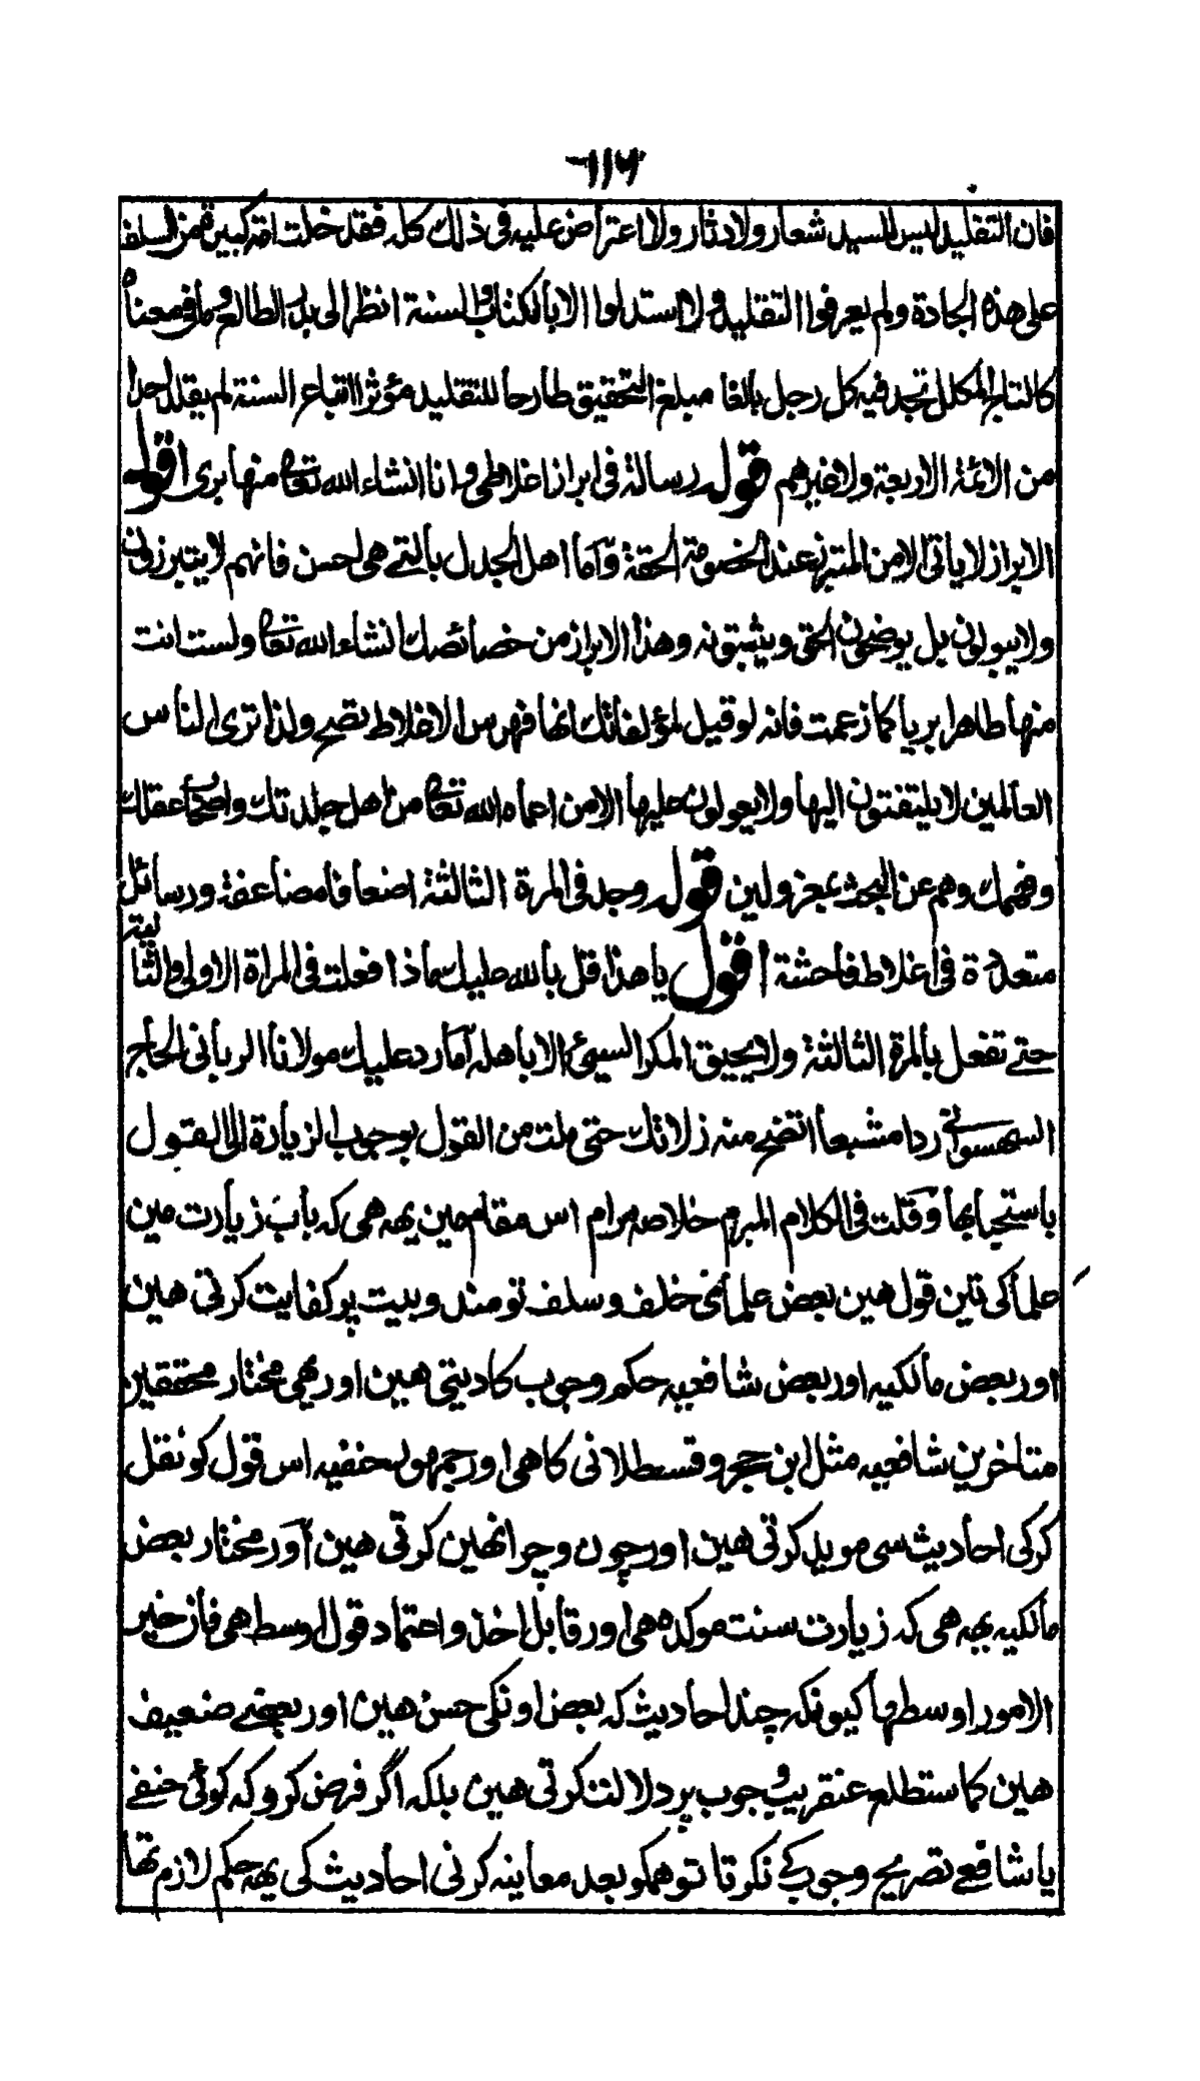 ١١٦
فان التقليد ليس للسيد شعار ولا دثار ولا اعتراض عليه فى ذلك كله فقد خلت امة كبيرة من السلف
على هذه الجادة ولم يعرفوا التقليد ولا استدلوا الا بالكتاب والسنة انظر الى بدر الطالع وما فى معناه
كالتاج المكلل تجد فيه كل رجل بالغا مبلغ التحقيق طارحا للتقليد مؤثرا اتباع السنة لم يقلد احدا
من الائمة الاربعة ولا غيرهم قوله رسالة فى ابراز اغلاطى وانا انشاء الله تعالى منها برى اقول
الابراز لا ياتى الا من المتبرز عند الخصومة الحقة وآما اهل الجدل بالتے هى احسن فانهم لا يتبرزون
ولا يبولون بل يوضحون الحق ويثبتونه وهذا الابراز من خصائصك انشاء الله تعالى ولست انت
منها طاهرا بريا كما زعمت فانه لو قيل لمؤلفاتك انها فهرس الاغلاط يصح ولذا ترى الناس
العالمين لا يلتفتون اليها ولا يعولون عليها الا من اعماه الله تعالى من اهل جلدتك واصحاب عقلك
وفهمك وهم عن البحث بمعزولين قوله وجد فى المرة الثالثة اضعافا مضاعفة ورسائل
متعددة فى اغلاط فاحشة اقول يا هذا قل بالله عليك ماذا فعلت فى المراة الاولى والثانية
حتے تفعل بالمرة الثالثة ولا يحيق المكر السيئ الا باهله آما رد عليك مولانا الربانى الحاج
السهسوانے ردا مشبعا اتضح منه زلاتك حتى ملت من القول بوجوب الزيارة الى القول
باستحبابها وقلت فى الكلام المبرم خلاصه مرام اس مقام مين يهہ هى كہ باب زيارت مين
علما كى تين قول هين بعض علمائى خلف وسلف تو مندوبيت پر كفايت كرتى هين
اور بعض مالكيہ اور بعض شافعيہ حكم وجوب كا ديتى هين اور يهى مختار محققين
متاخرين شافعيہ مثل ابن حجر وقسطلانى كا هى اور جمہور حنفيہ اس قول كو نقل
كركى احاديث سى مويد كرتى هين اور چون وچرا نهين كرتى هين آور مختار بعض
مالكيہ يهہ هى كہ زيارت سنت موكدہ هى اور قابل اخذ واعتماد قول اوسط هى فان خير
الامور اوسطها كيونكہ چند احاديث كہ بعض اونكى حسن هين اور بعضے ضعيف
هين كما ستطلع عنقريب وجوب پر دلالت كرتى هين بلكہ اگر فرض كرو كہ كوئى حنفے
يا شافعے تصريح وجوب كے نكرتا تو همكو بعد معاينہ كرنى احاديث كى يهہ حكم لازم تها